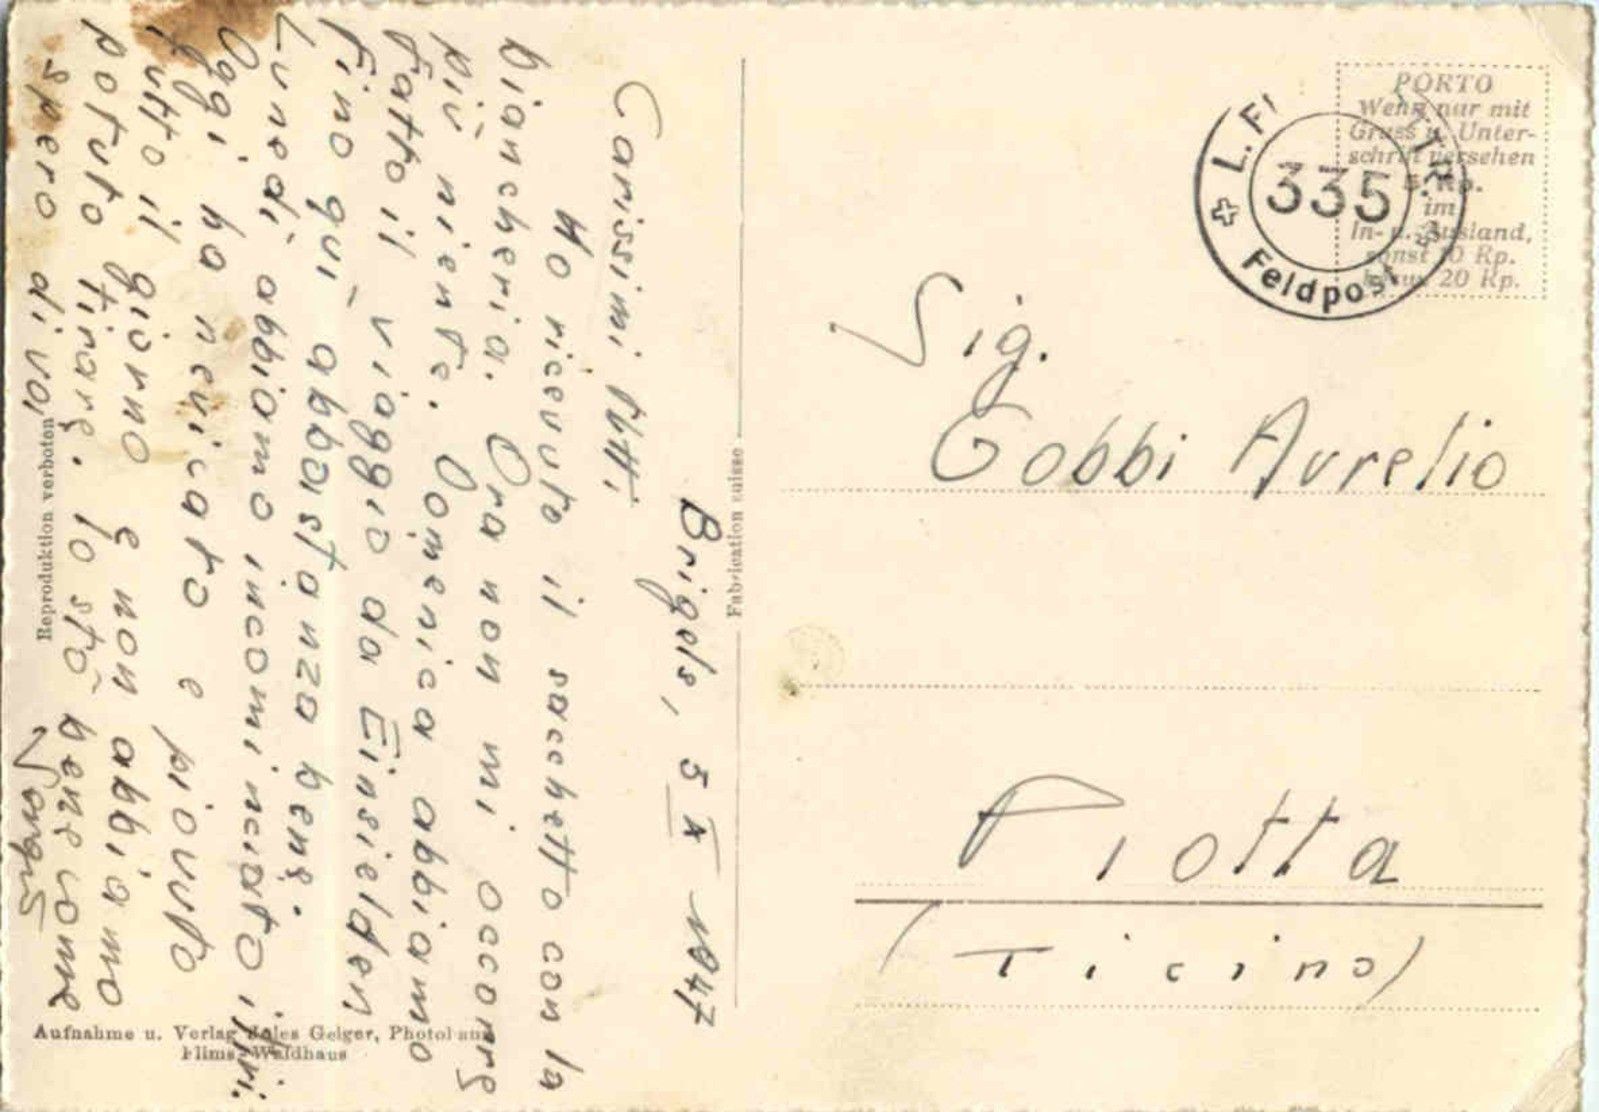 Brigels, 5 X 1947
Carissimi tutti
Ho ricevuto il sacchetto con la
biancheria. Ora non mi occorre
più niente. Domenica abbiamo
fatto il viaggio da Einsielden
Fino quì abbastanza bene.
Lunedì abbiamo incominciato i tiri.
Oggi ha nevicato e piovuto
tutto il giorno e non abbiamo
potuto tirare. Io stò bene come
spero di voi
Fabrication suisse
Reproduktion verboten
Aufnahme u. Verlag Jules Geiger, Photo
Flims-Waldhaus
PORTO
Wenn nur mit
Gruss u. Unter-
schrift versehen
5 Rp.
im
In- u. Ausland,
sonst 10 Rp.
20 Rp.
335
Feldpost
Sig.
Gobbi Aurelio
Piotta
(Ticino)